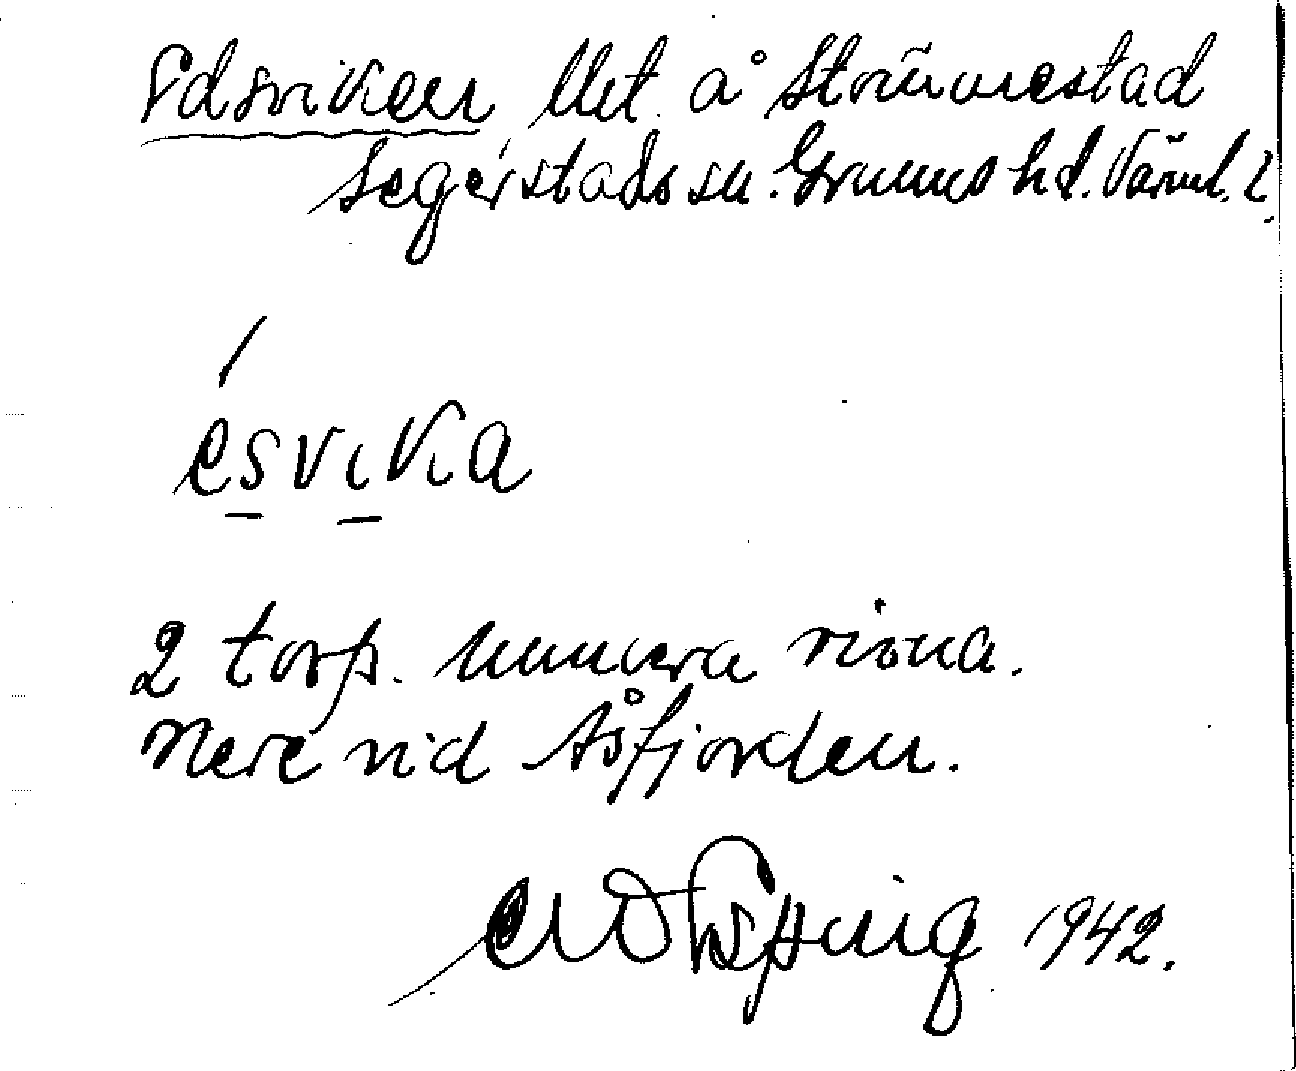 Edsviken Utet. å Strömmestad
Segerstads sn. Grums hd. Värml. l.
ésvika
2 torp. Numera rivna.
Nere vid Åsfjorden.
1942.